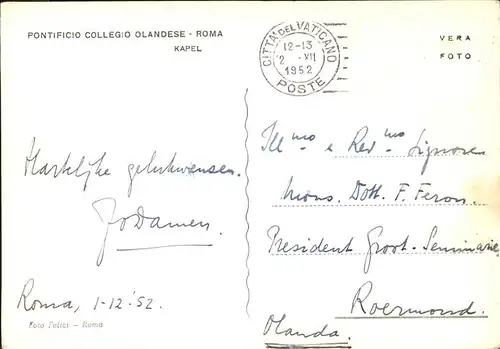 PONTIFICIO COLLEGIO OLANDESE - ROMA
KAPEL
CITTA' DEL VATICANO
12-13
2 .XII
1952
POSTE
VERA
FOTO
Hartelijke gelukwensen.
Jo Damen.
Roma, 1-12-'52.
Foto Felici - Roma
Ill.mo e Rev.mo Signore
Mons. Dott. F. Feron.
President Groot-Seminarie
Roermond.
Olanda.